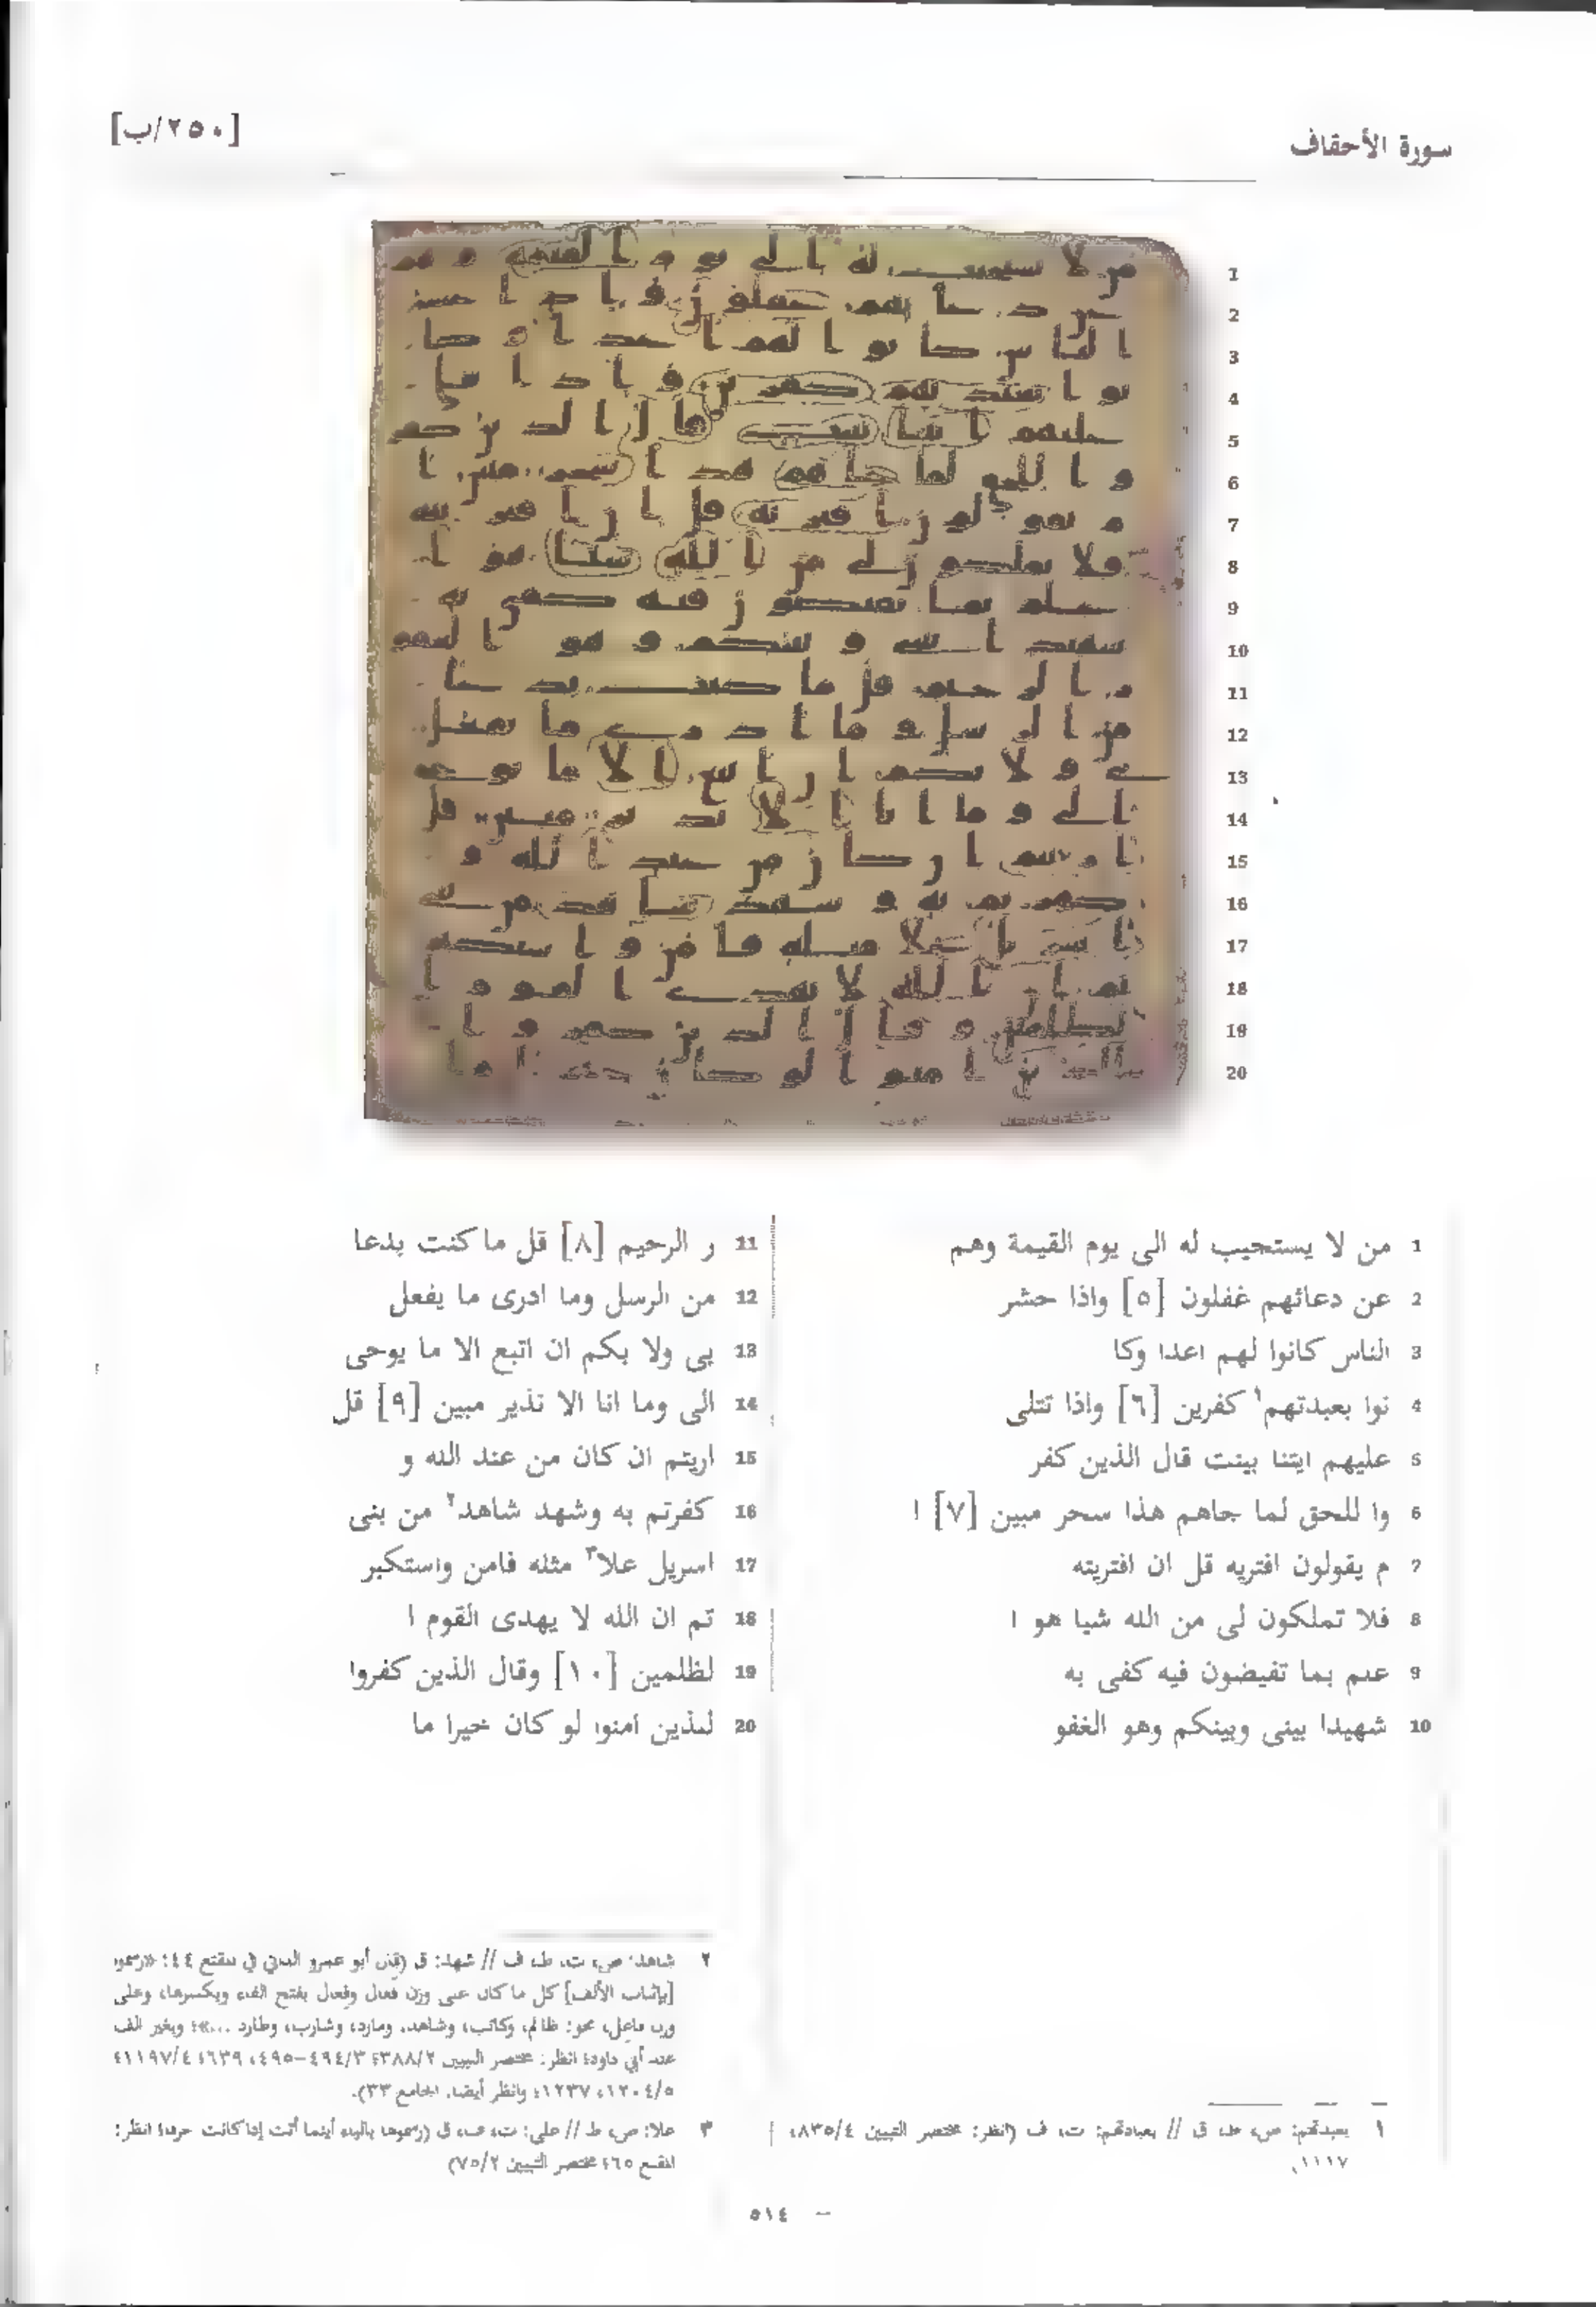 سورة الأحقاف
[٢٥٠/ب]
1 من لا يستجيب له الى يوم القيمة وهم
2 عن دعائهم غفلون [٥] واذا حشر
3 الناس كانوا لهم اعدا وكا
4 نوا بعبدتهم١ كفرين [٦] واذا تتلى
5 عليهم ايتنا بينت قال الذين كفر
6 وا للحق لما جاهم هذا سحر مبين [٧] ا
7 م يقولون افتريه قل ان افتريته
8 فلا تملكون لى من الله شيا هو ا
9 علم بما تفيضون فيه كفى به
10 شهيدا بينى وبينكم وهو الغفو
11 ر الرحيم [٨] قل ما كنت بدعا
12 من الرسل وما ادرى ما يفعل
13 بى ولا بكم ان اتبع الا ما يوحى
14 الى وما انا الا نذير مبين [٩] قل
15 اريتم ان كان من عند الله و
16 كفرتم به وشهد شاهد٢ من بنى
17 اسريل علا٣ مثله فامن واستكبر
18 تم ان الله لا يهدى القوم ا
19 لظلمين [١٠] وقال الذين كفروا
20 للذين امنوا لو كان خيرا ما
١ بعبدتهم: ص، ط، ق // بعبادتهم: ت، ف (انظر: مختصر التبيين ٨٣٥/٤،
١١١٧).
٢ شاهد: ص، ت، ط، ف // شهد: ق (قال أبو عمرو الداني في المقنع ٤٤: «رسموا
[بإثبات الألف] كل ما كان على وزن فعال وفعال بفتح الفاء وبكسرها، وعلى
وزن فاعل، نحو: ظالم، وكاتب، وشاهد، ومارد، وشارب، وطارد ...»؛ وبغير الف
عند أبي داود؛ انظر: مختصر التبيين ٣٨٨/٢؛ ٤٩٤/٣-٤٩٥، ٦٣٩؛ ١١٩٧/٤؛
١٢٠٤/٥، ١٢٣٧؛ وانظر أيضا، الجامع ٣٣).
٣ علا: ص، ط // على: ت، ف، ق (رسموها بالياء أينما أتت إذا كانت حرفا؛ انظر:
المقنع ٦٥؛ مختصر التبيين ٧٥/٢)
٥١٤